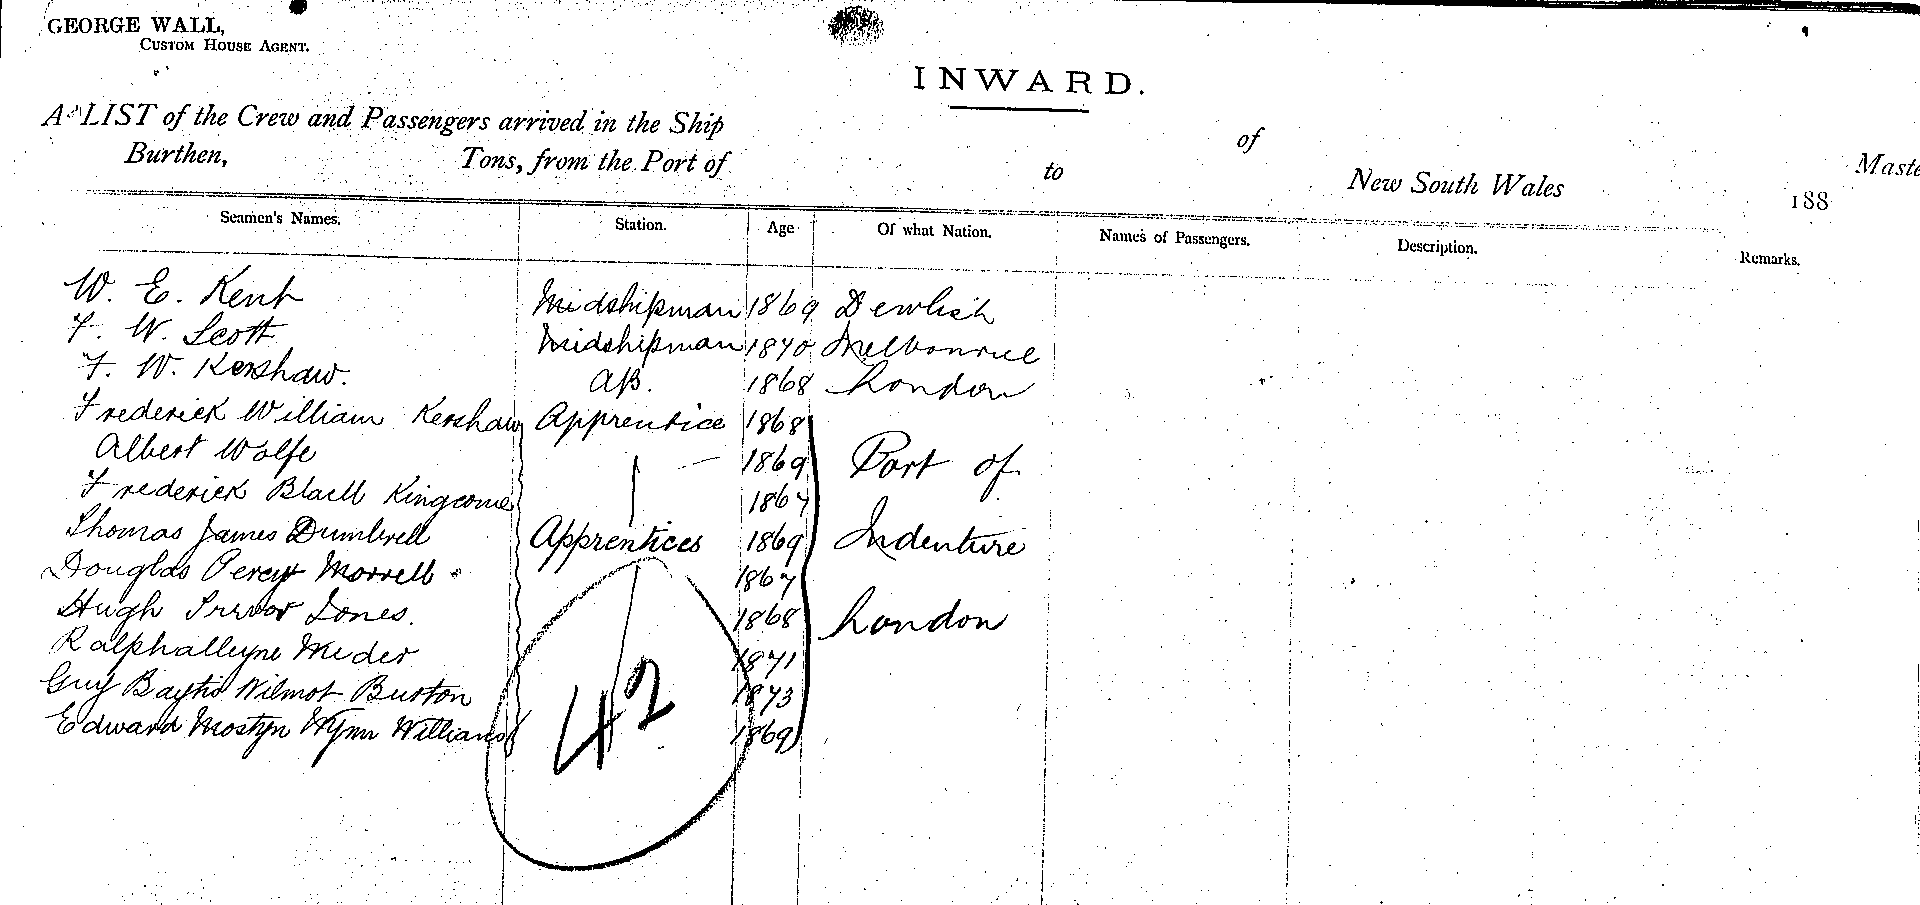 GEORGE WALL,
CUSTOM HOUSE AGENT.
INWARD.
A LIST of the Crew and Passengers arrived in the Ship of Maste
Burthen, Tons, from the Port of to New South Wales 188
Seamen's Names. Station. Age Of what Nation. Names of Passengers. Description. Remarks.
W. E. Kent Midshipman 1869 Dewlish
F. W. Scott Midshipman 1870 Melbourne
F. W. Kershaw. AB. 1868 London
Frederick William Kershaw Apprentice 1868
Albert Wolfe 1869 Port of
Frederick Kingcome 1867
Thomas James Dumbrell Apprentices 1869 Indenture
Douglas Percy Morrell 1867
Hugh Trevor Jones. 1868 London
Ralphalleyne Meder 1871
Guy Wilmot Burton 1873
Edward Mostyn Wynn Williams 1869
42